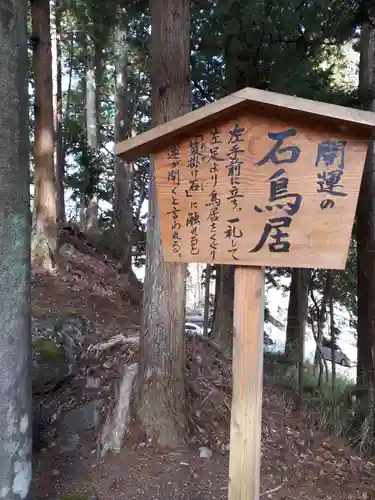 開運の
石鳥居
左手前に立ち、一礼して
左足より鳥居をくぐり
「笠掛け石」に触れると
運が開くと言われる